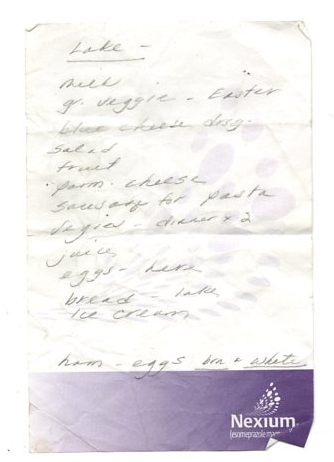 Lake -
milk
gr. veggie - Easter
blue cheese drsg.
salad
fruit
parm. cheese
sausage for pasta
vegies - dinner x 2
juice
eggs - here
bread - lake
ice cream
ham - eggs brn & white
Nexium
(esomeprazole